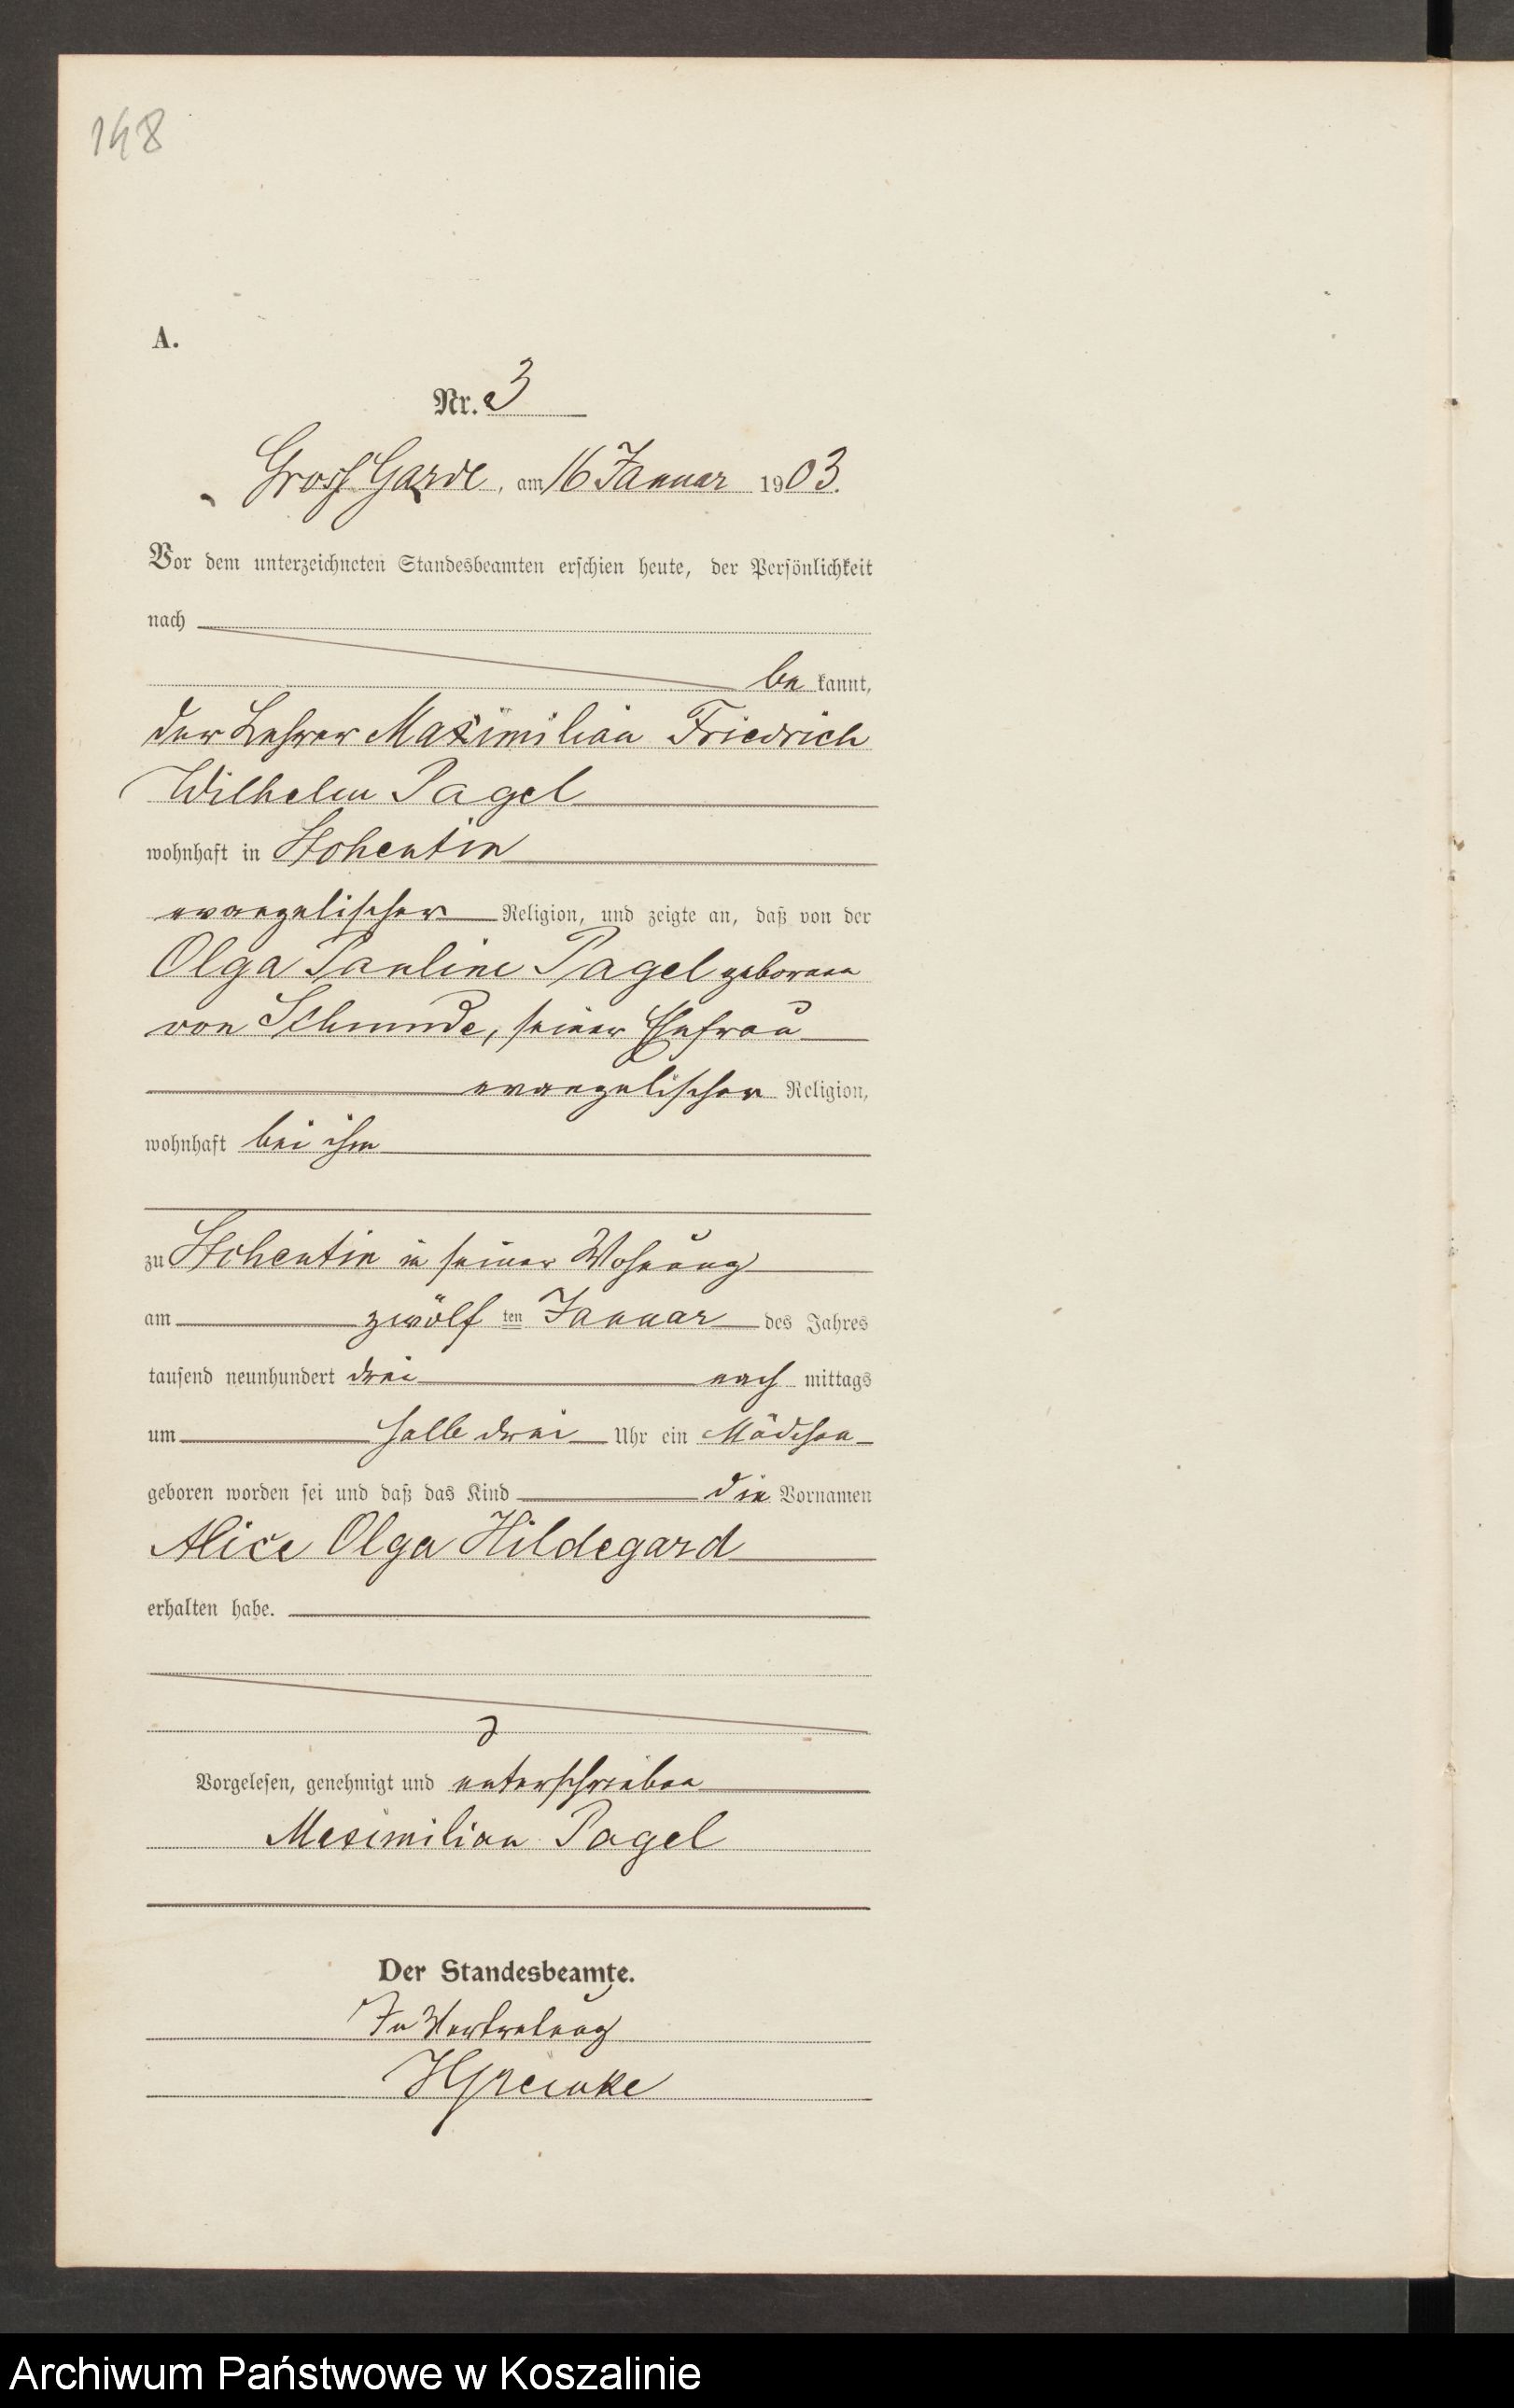 148
A.
Nr. 3
Gross Garde, am 16 Januar 1903.
Vor dem unterzeichneten Standesbeamten erschien heute, der Persönlichkeit
nach
be kannt,
der Lehrer Maximilian Friedrich
Wilhelm Pagel
wohnhaft in Stohentin
evangelischer Religion, und zeigte an, daß von der
Olga Pauline Pagel geborene
von Schmude, seiner Ehefrau
evangelischer Religion,
wohnhaft bei ihm
zu Stohentin in seiner Wohnung
am zwölf ten Januar des Jahres
tausend neunhundert drei nach mittags
um halb drei Uhr ein Mädchen
geboren worden sei und daß das Kind die Vornamen
Alice Olga Hildegard
erhalten habe.
Vorgelesen, genehmigt und unterschrieben
Maximilian Pagel
Der Standesbeamte.
In Vertretung
Archiwum Państwowe w Koszalinie